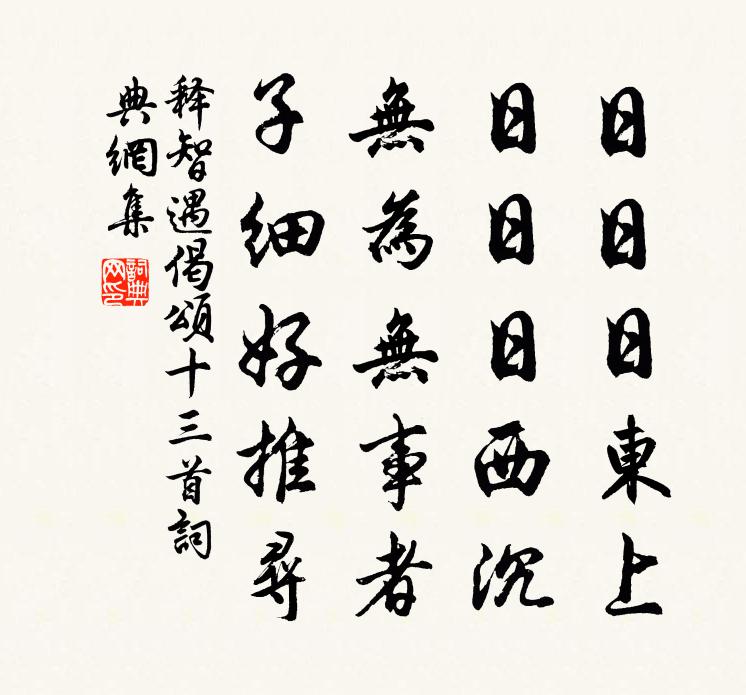 日日日東上
日日日西沉
無為無事者
子細好推尋
释智遇偈頌十三首詞
典網集
詞典
网印